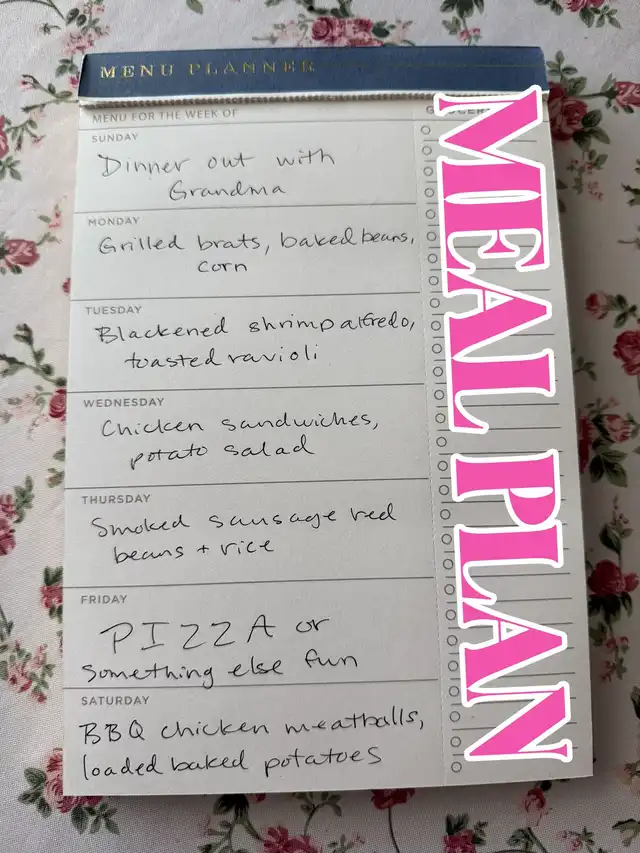 MENU PLANNER
MENU FOR THE WEEK OF
SUNDAY
Dinner out with
Grandma
MONDAY
Grilled brats, baked beans,
corn
TUESDAY
Blackened shrimp alfredo,
toasted ravioli
WEDNESDAY
Chicken sandwiches,
potato salad
THURSDAY
Smoked sausage red
beans + rice
FRIDAY
PIZZA or
something else fun
SATURDAY
BBQ chicken meatballs,
loaded baked potatoes
MEAL PLAN